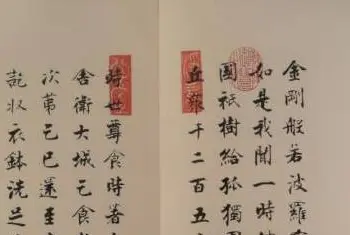 金剛般若波羅
如是我聞一時
國祇樹給孤獨園
丘眾千二百五
時世尊食時著
舍衛大城乞食
次第乞已還至
訖收衣鉢洗足